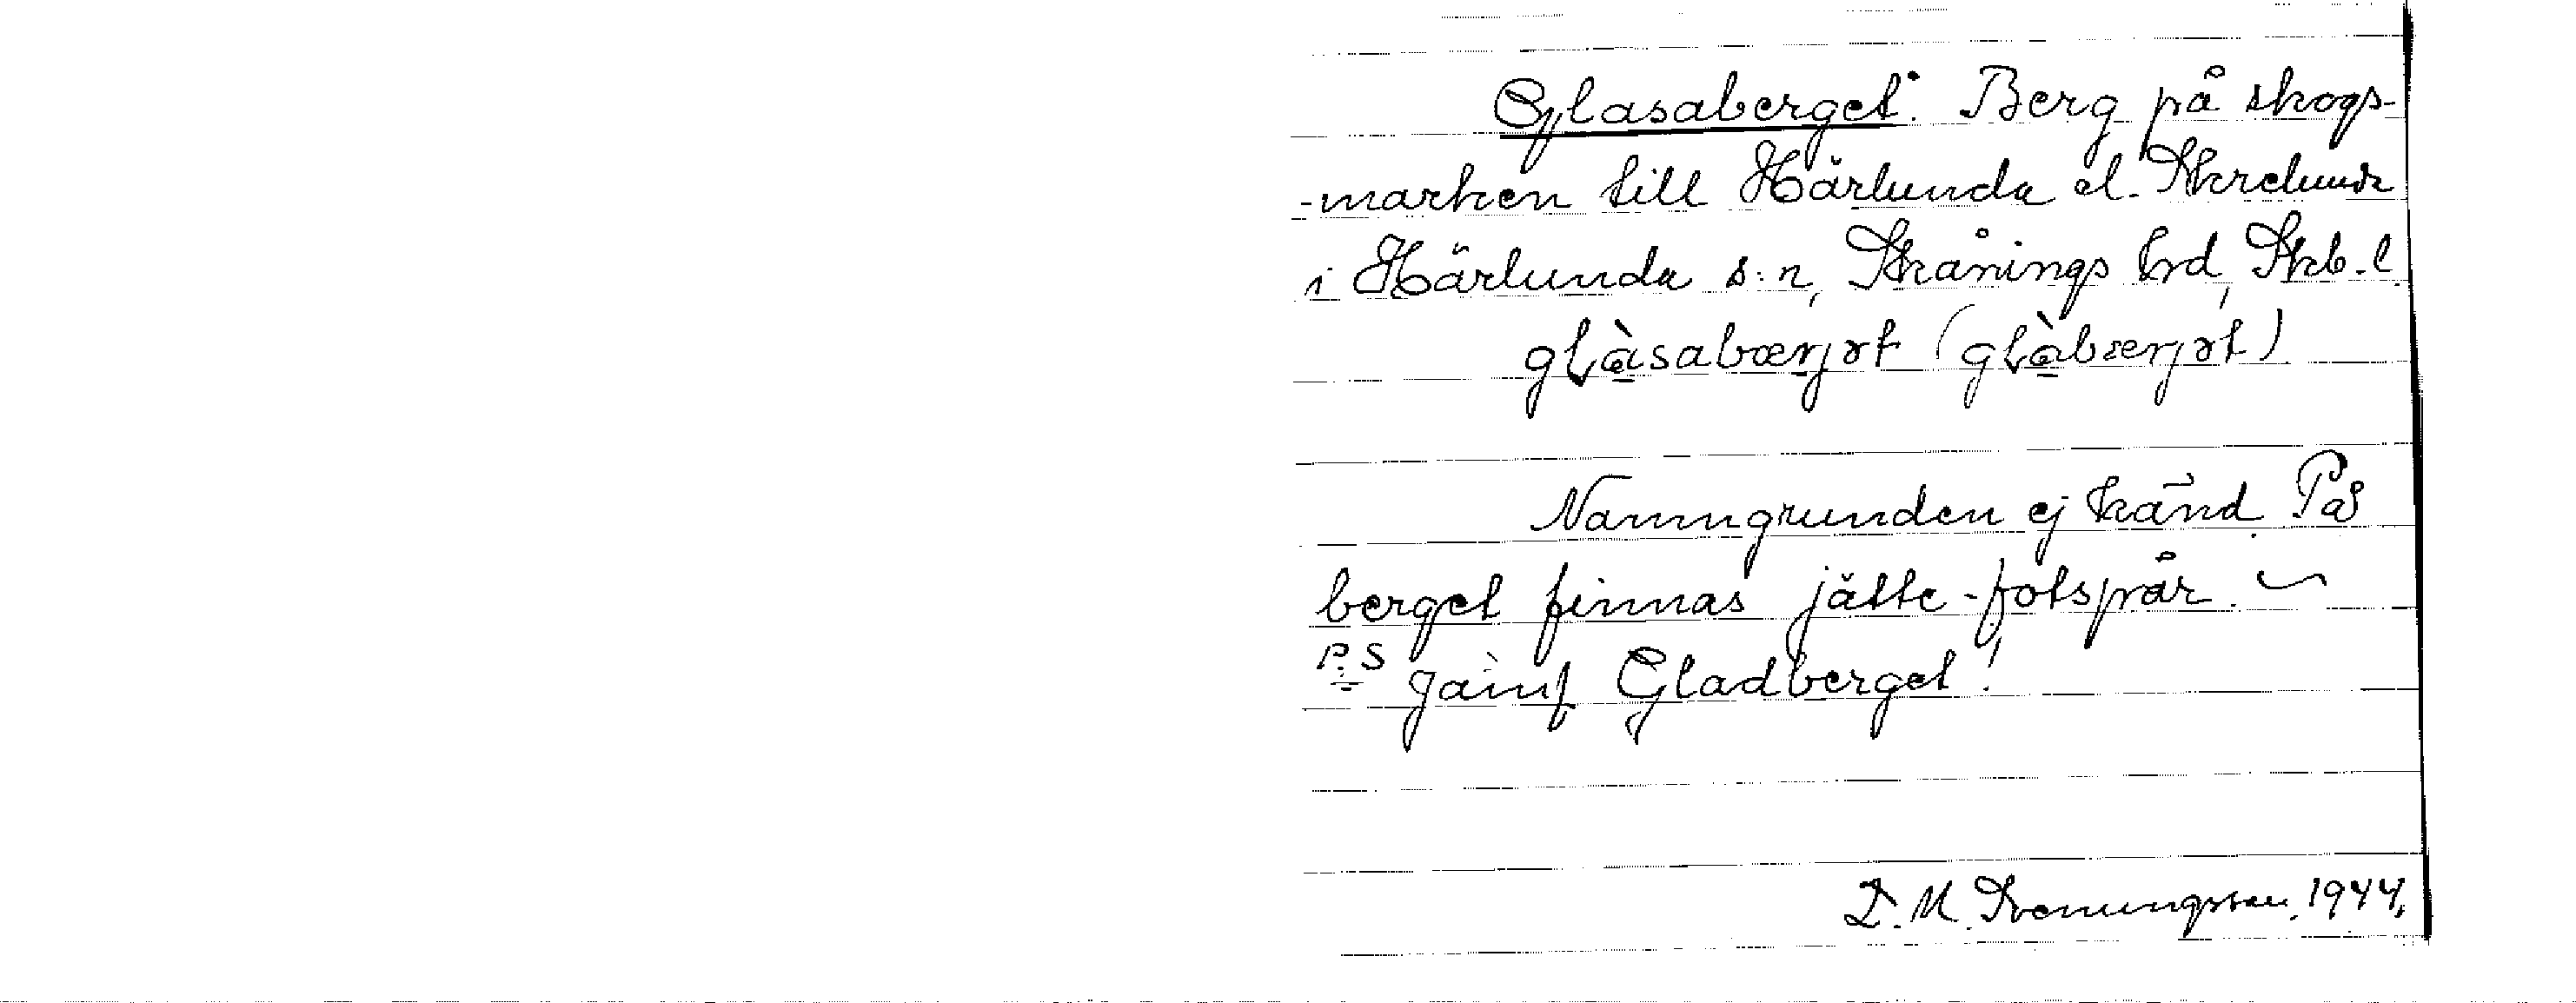 Glasaberget: Berg på skogs-
-marken till Härlunda el. Skrelunda
i Härlunda s:n, Skånings hrd, Skb. l.
glàsabærjət (glàbærjət)
Namngrunden ej känd. På
berget finnas jätte-fotspår. ~
P.S
Jämf Gladberget!
D. M. Svenungsson. 1944.